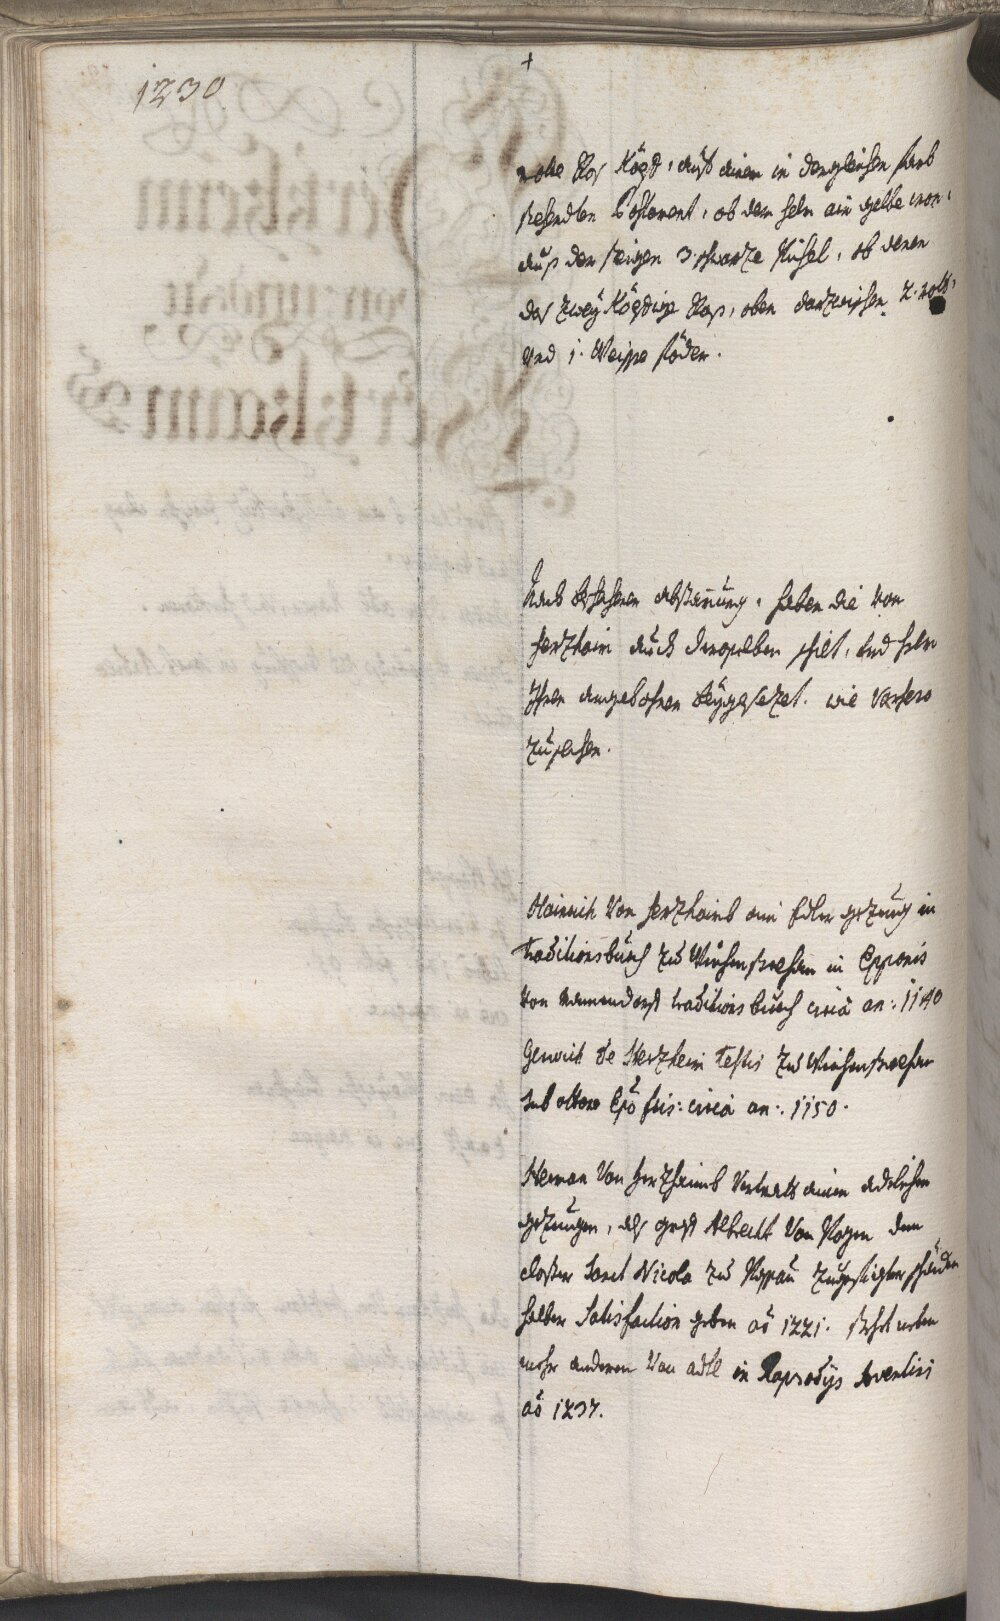 1230
+
rothe Ros Köpf, auß ainem in dergleichen farb
stehendten Postement, ob dem helm ain gelbe cron,
auß der steigen 3 schwarze Hühel, ob denen
das zwey Köpfige Ros, oben darzwischen 2. roth,
Und 1. Weisse föder.
Nach beschehener abstamung, haben die von
herzhaim auch deroselben schilt, und helm
Ihren angebohrnen beygesezet. wie vorhero
zusehen.
Hainrich Von herzhaimb ain Edler gezeug in
traditionsbuch zu Weichenstephan in Epponis
von traditions buech circa an: 1140
Genrich de Herzheim testis zu Weichenstephan
sub ottone Epõ fris: circa an: 1150.
Herman Von herzhaimb Vertratt ainen adelichen
gezeugen, als graf Albrecht Von Bogen dem
closter Sanct Nicola zu Passau zuegefiegter schäden
halber Satisfaction geben aõ 1221. steht neben
mehr anderen Von adl in Rapsodijs Aventini
aõ 1237.